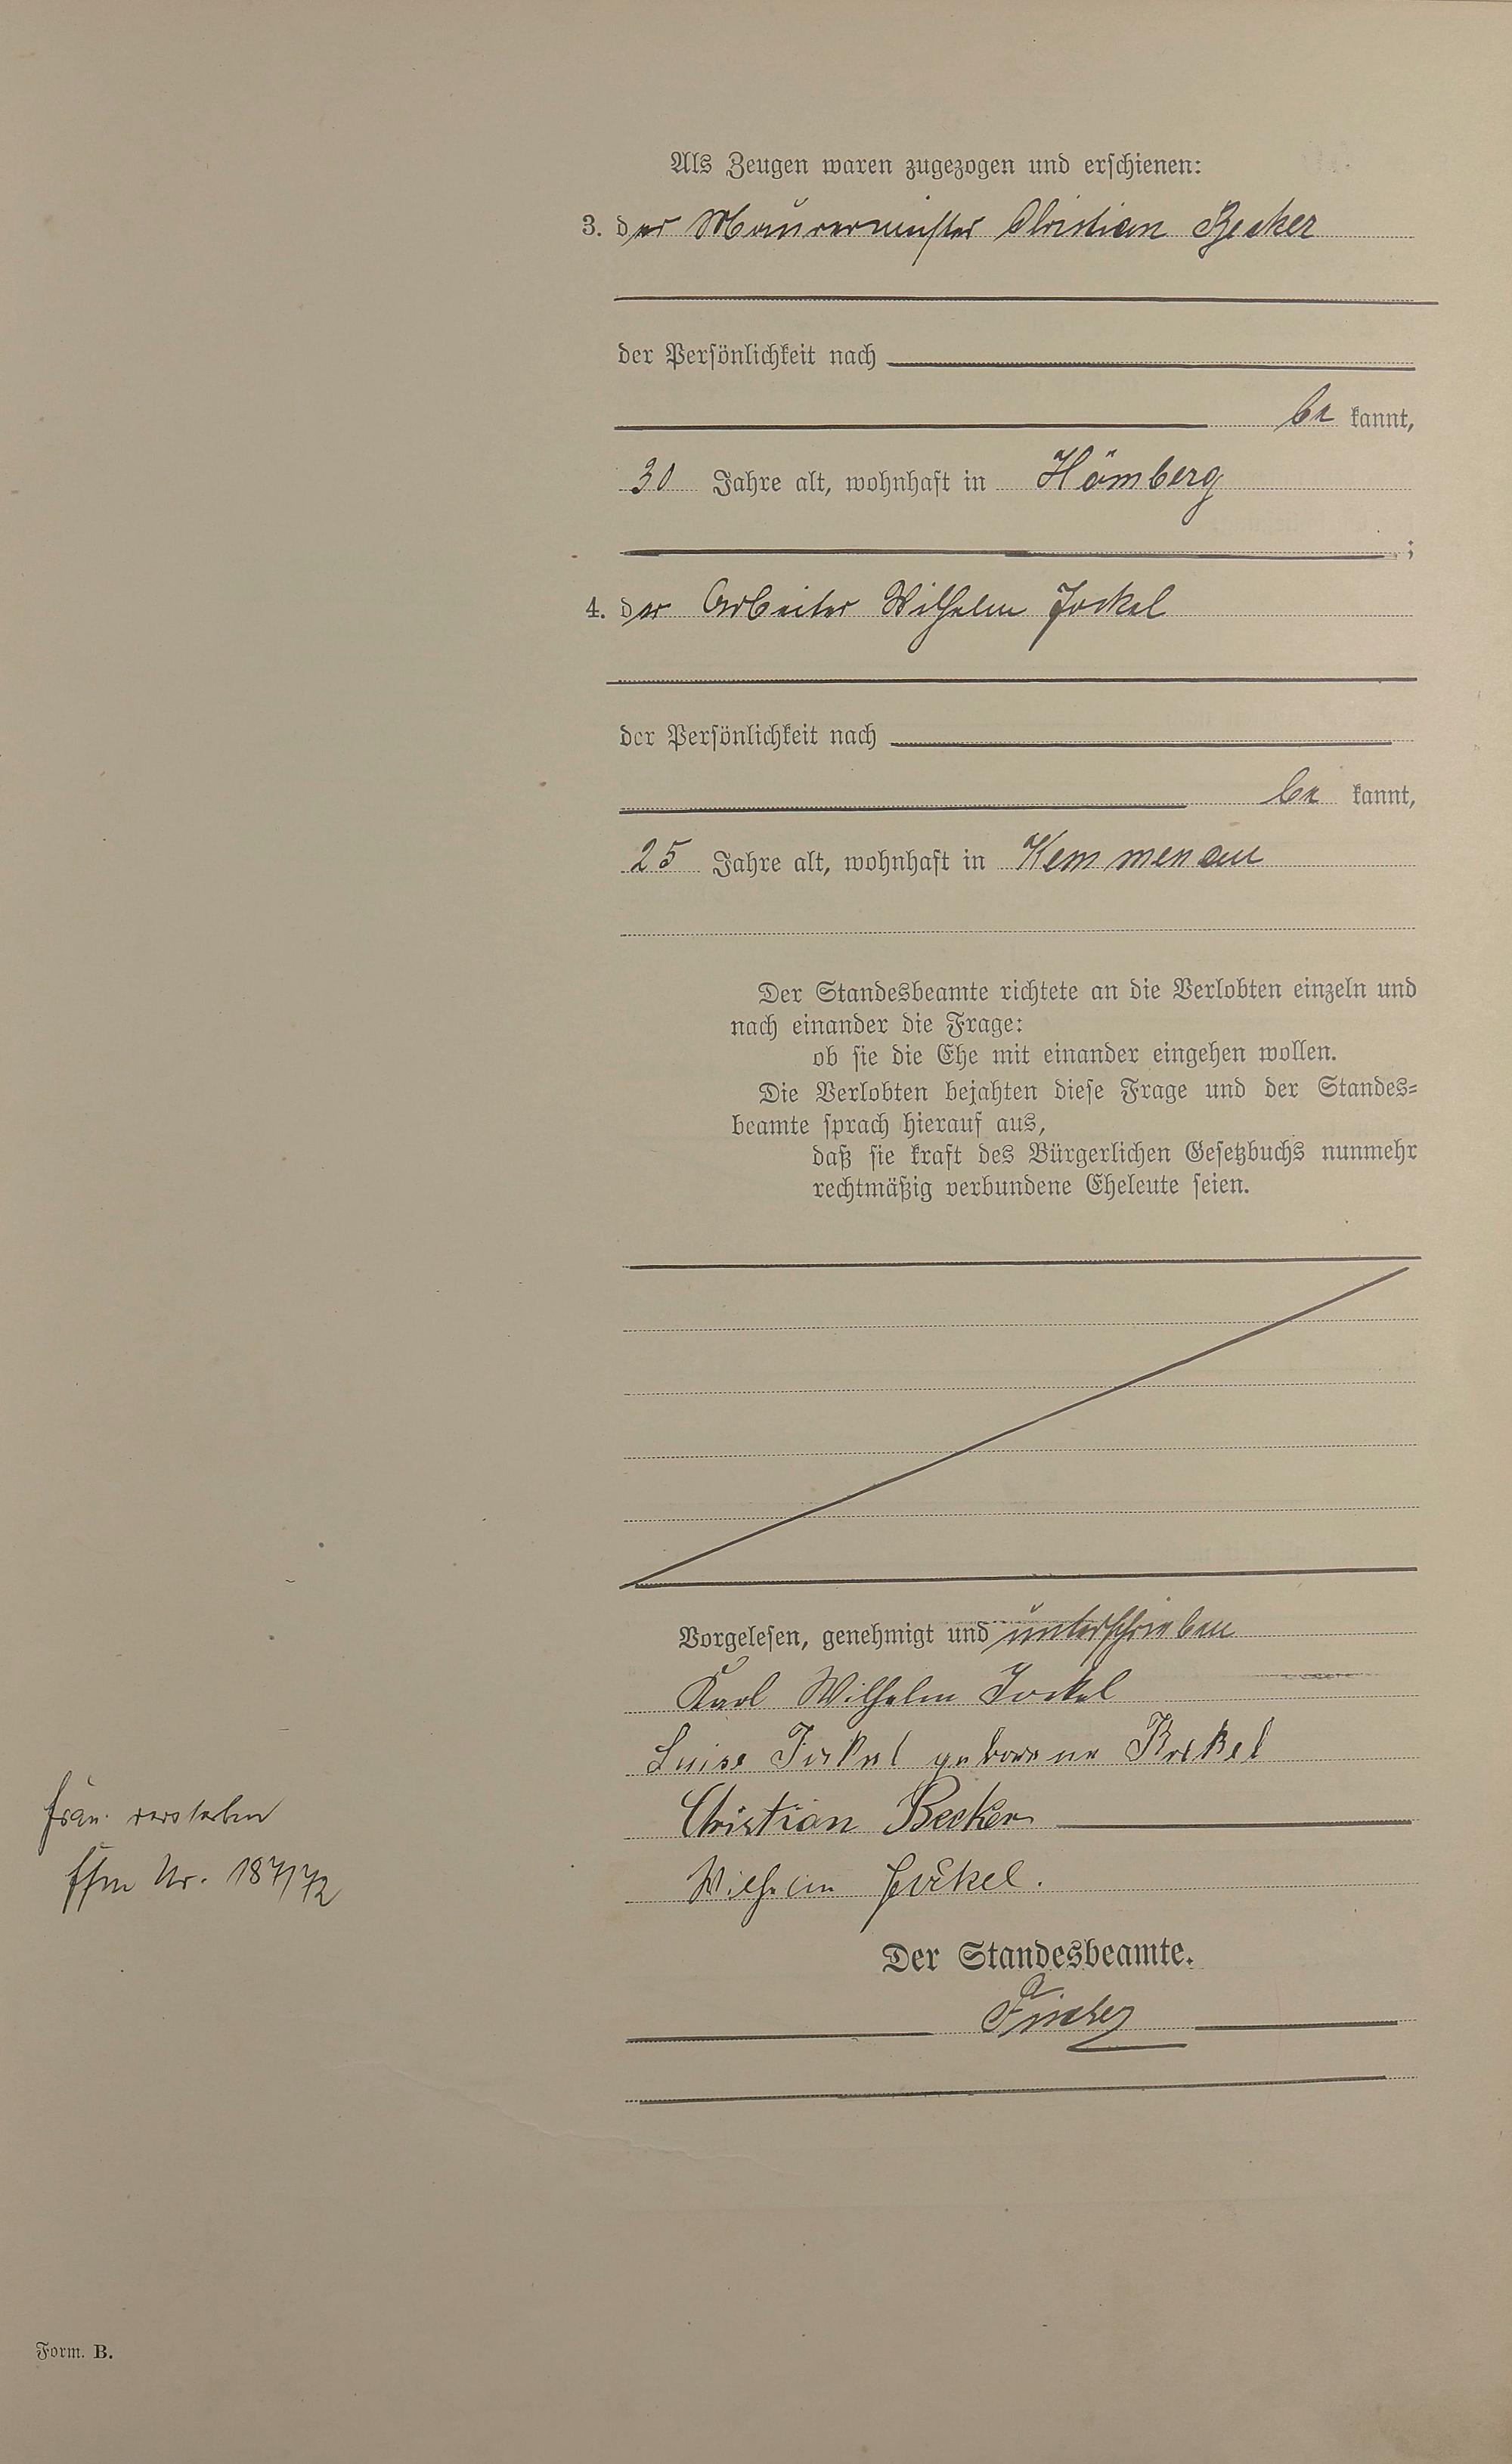 Als Zeugen waren zugezogen und erschienen:
3. der Maurermeister Christian Becker
der Persönlichkeit nach
be kannt,
30 Jahre alt, wohnhaft in Hömberg
;
4. der Arbeiter Wilhelm Jockel
der Persönlichkeit nach
be kannt,
25 Jahre alt, wohnhaft in Kemmenau
Der Standesbeamte richtete an die Verlobten einzeln und
nach einander die Frage:
ob sie die Ehe mit einander eingehen wollen.
Die Verlobten bejahten diese Frage und der Standes=
beamte sprach hierauf aus,
daß sie kraft des Bürgerlichen Gesetzbuchs nunmehr
rechtmäßig verbundene Eheleute seien.
Vorgelesen, genehmigt und unterschrieben
Karl Wilhelm Jockel
Luise Jockel geborene
Christian Becker
Wilhelm Jockel.
Frau verstorben
Ffm Nr. 187/72
Der Standesbeamte.
Fischer
Form. B.